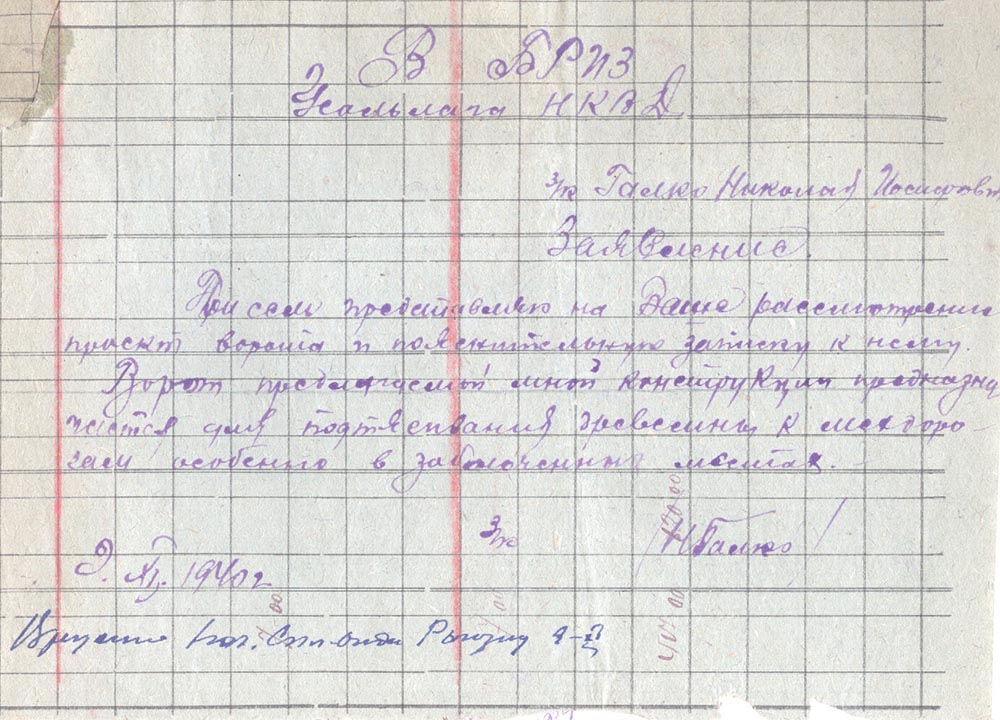 В БРИЗ
Усольлага НКВД
з/к Галко Николая Иосифович
Заявление.
При сем представляю на Ваше рассмотрение
проект ворота и пояснительную записку к нему.
Ворот предлагаемый мной конструкции предназна
чается для подтаскивания древесины к мехдоро-
гам особенно в заболоченных местах. -
з/к /НГалко/
9. XI. 1940г
Вручено